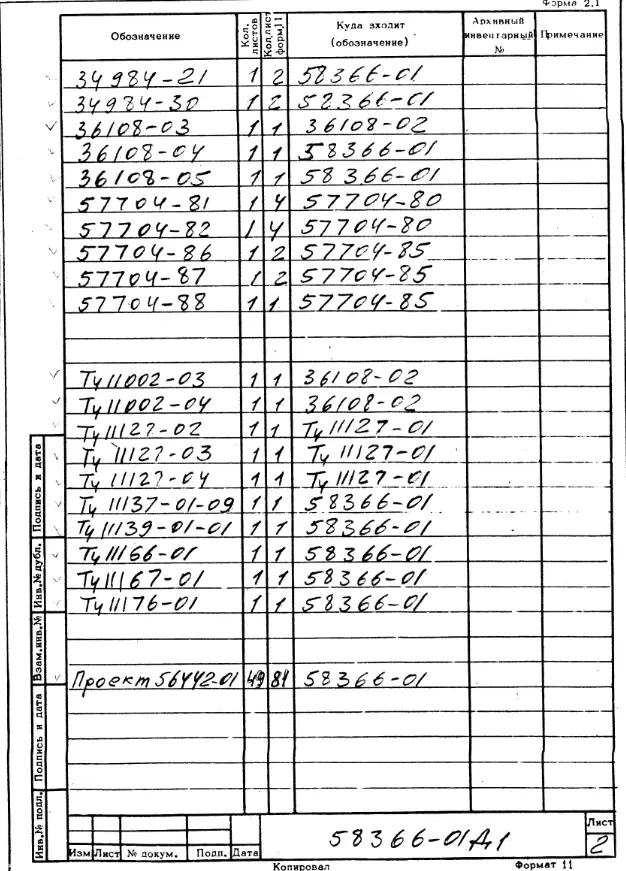 Форма 2.1
Обозначение Кол. листов Кол.лист форм.11 Куда входит (обозначение) Архивный инвентарный № Примечание
34984-21 1 2 58366-01
34984-30 1 2 58366-01
36108-03 1 1 36108-02
36108-04 1 1 58366-01
36108-05 1 1 58366-01
57704-81 1 4 57704-80
57704-82 1 4 57704-80
57704-86 1 2 57704-85
57704-87 1 2 57704-85
57704-88 1 1 57704-85
Ту11002-03 1 1 36108-02
Ту11002-04 1 1 36108-02
Ту11127-02 1 1 Ту11127-01
Ту11127-03 1 1 Ту11127-01
Ту11127-04 1 1 Ту11127-01
Ту11137-01-09 1 1 58366-01
Ту11139-01-01 1 1 58366-01
Ту11166-01 1 1 58366-01
Ту11167-01 1 1 58366-01
Ту11176-01 1 1 58366-01
Проект 56442-01 49 81 58366-01
Подпись и дата
Инв.№ дубл.
Взам.инв.№
Подпись и дата
Инв.№ подл.
58366-01Д1
Лист
2
Изм Лист № докум. Подп. Дата
Копировал Формат 11